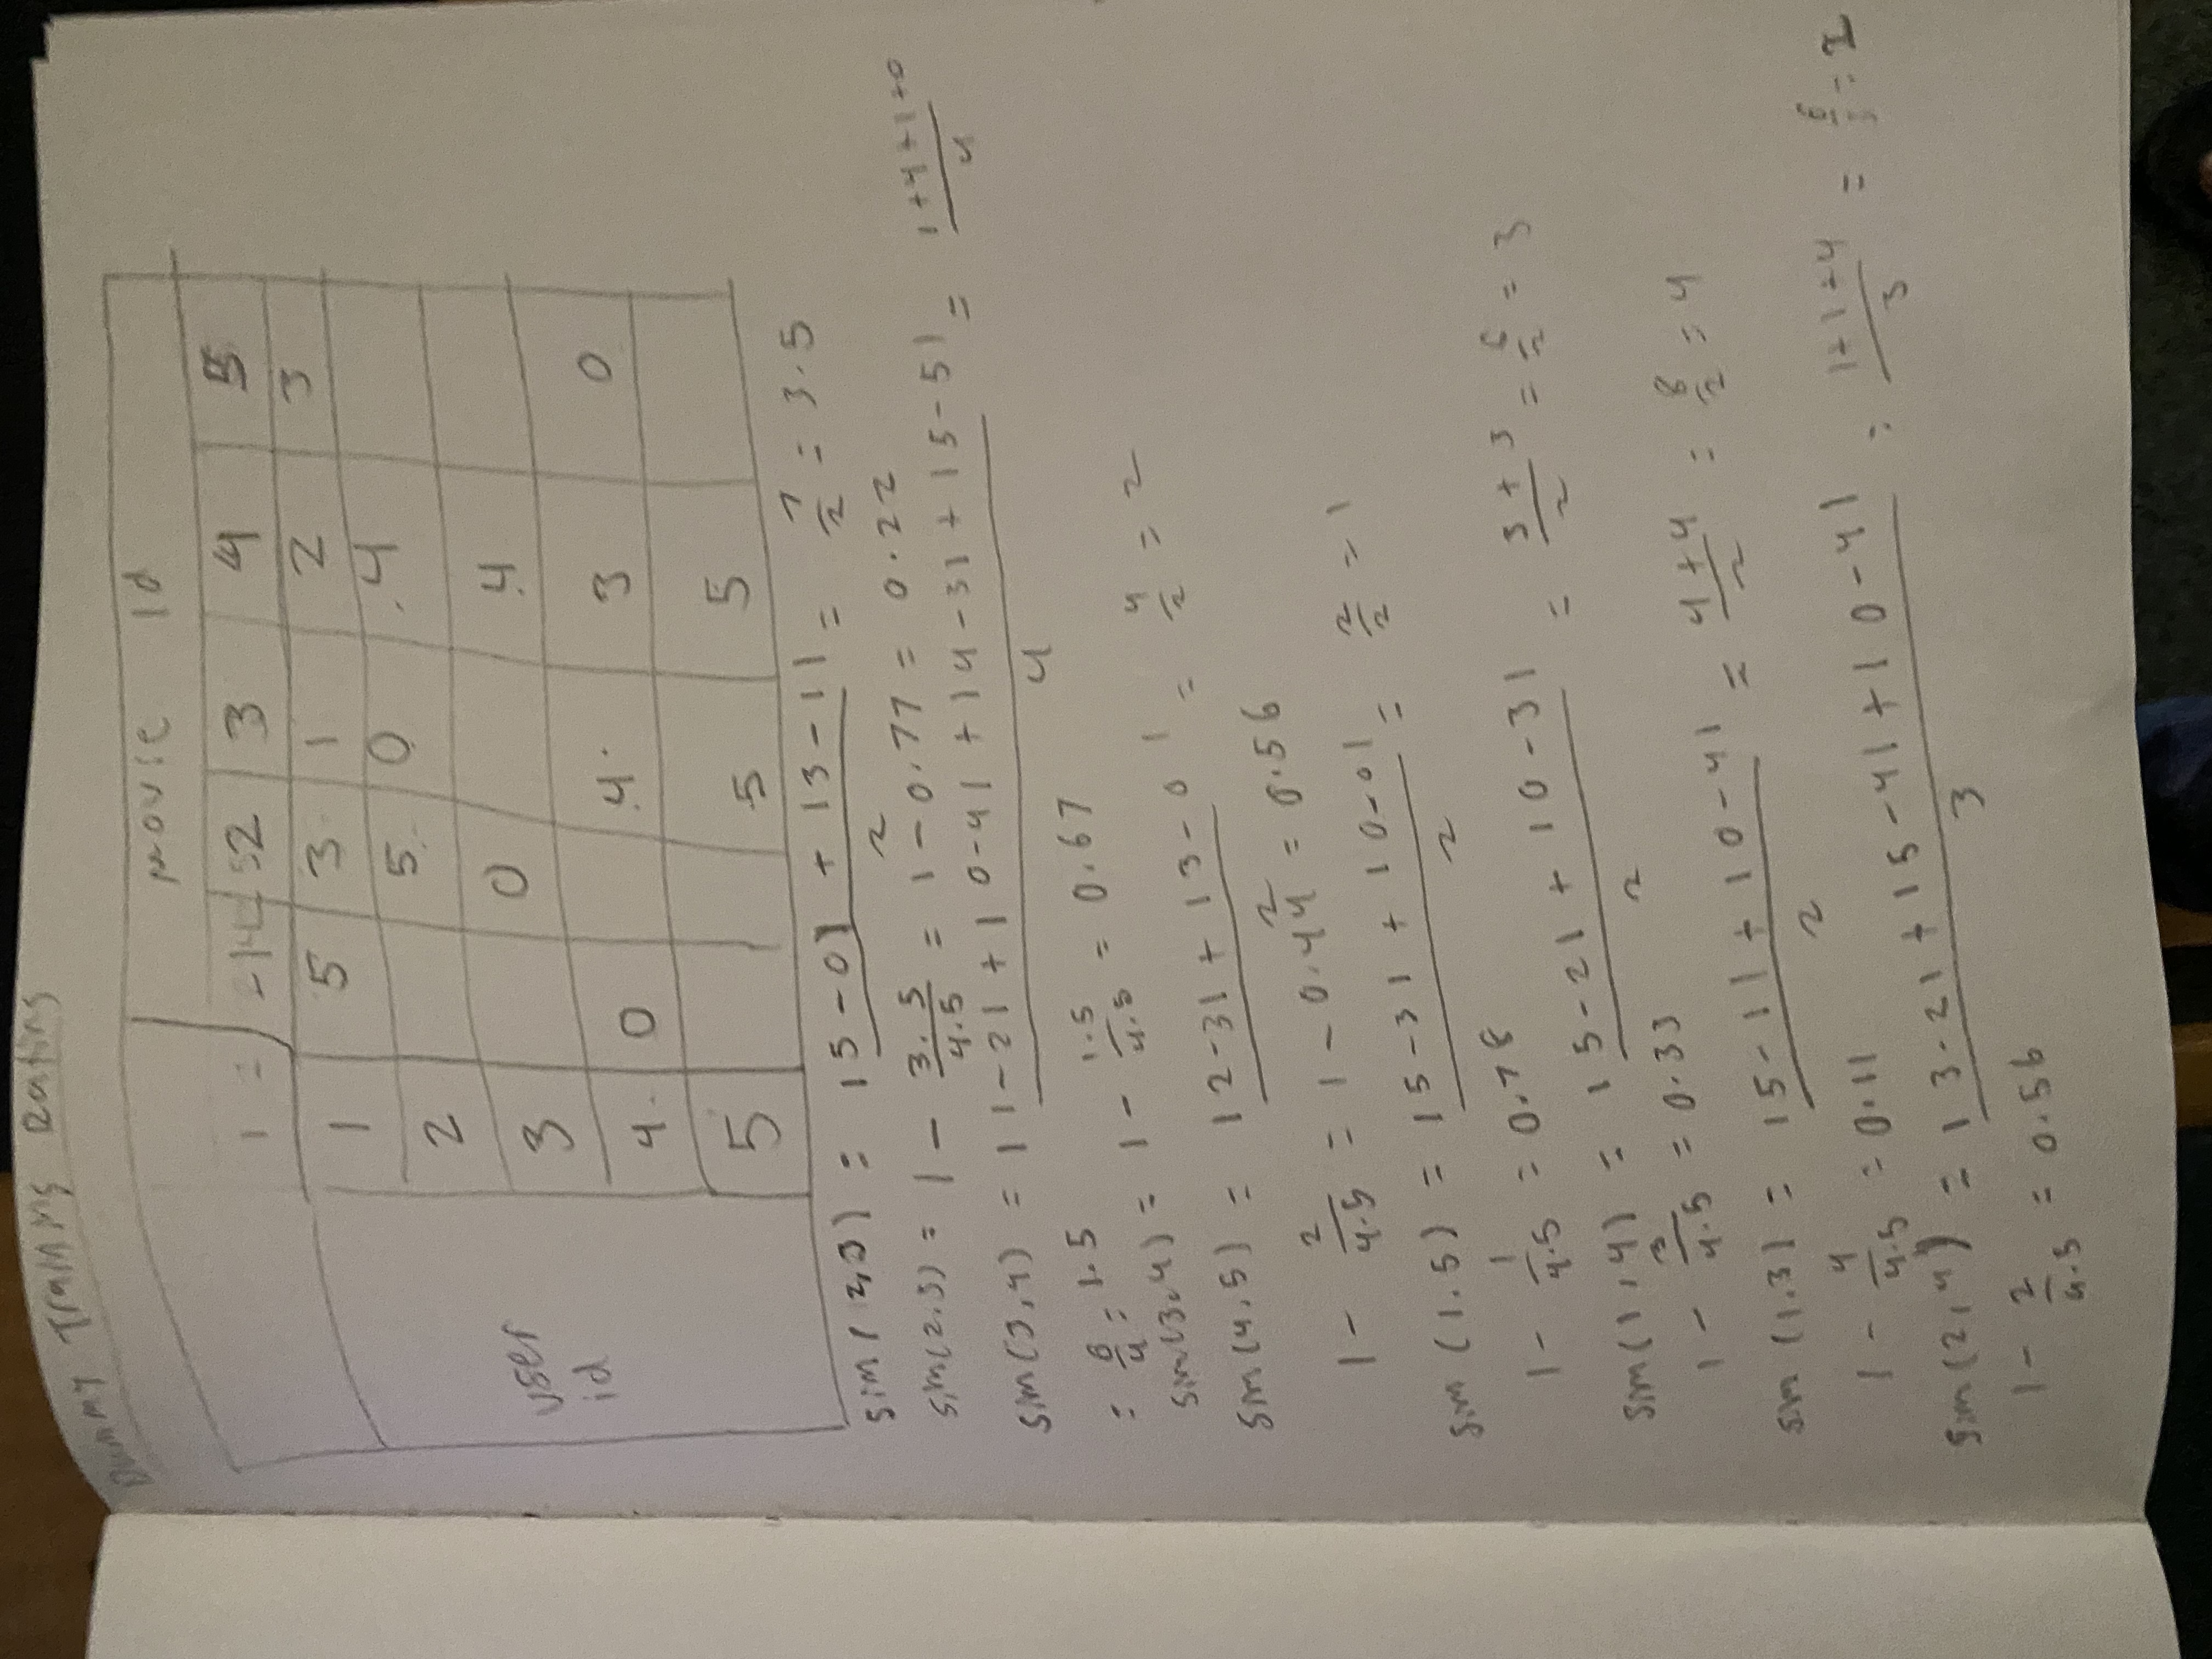 Dummy Training Rating
movie Id
1 2 3 4 5
1 5 3 1 2 3
2 5 0 4
user id
3 0 4
4 0 4 3 0
5 5 5
sim(2,3) = |5-0| + |3-1| / 2 = 7/2 = 3.5
sim(2.3) = 1 - 3.5/4.5 = 1 - 0.77 = 0.22
sim(3,4) = |1-2| + |0-4| + |4-3| + |5-5| / 4 = 1+4+1+0 / 4
= 6/4 = 1.5
sim(3,4) = 1 - 1.5/4.5 = 0.67
sim(4,5) = |2-3| + |3-0| / 2 = 4/2 = 2
1 - 2/4.5 = 1 - 0.44 = 0.56
sim(1.5) = |5-3| + |0-0| / 2 = 2/2 = 1
1 - 1/4.5 = 0.78
sim(1,4) = |5-2| + |0-3| / 2 = 3+3 / 2 = 6/2 = 3
1 - 3/4.5 = 0.33
sim(1.3) = |5-1| + |0-4| / 2 = 4+4 / 2 = 8/2 = 4
1 - 4/4.5 = 0.11
sim(2,4) = |3-2| + |5-4| + |0-4| / 3 = 1+1+4 / 3 = = 2
1 - 2/4.5 = 0.56